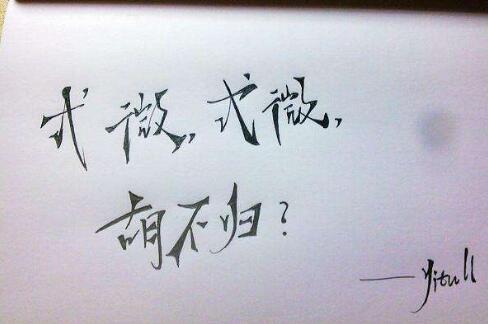 式微,式微,
胡不归?
——yitull